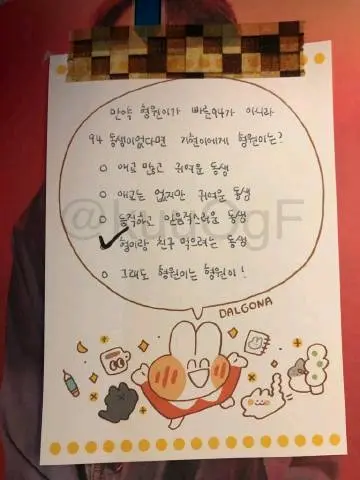 만약 형원이가 빠른94가 아니라
94 동생이었다면 기현이에게 형원이는?
o 애교 많고 귀여운 동생
o 애교는 없지만 귀여운 동생
o 듬직하고 믿음직스러운 동생
✓ 형이랑 친구 먹으려는 동생
o 그래도 형원이는 형원이!
DALGONA